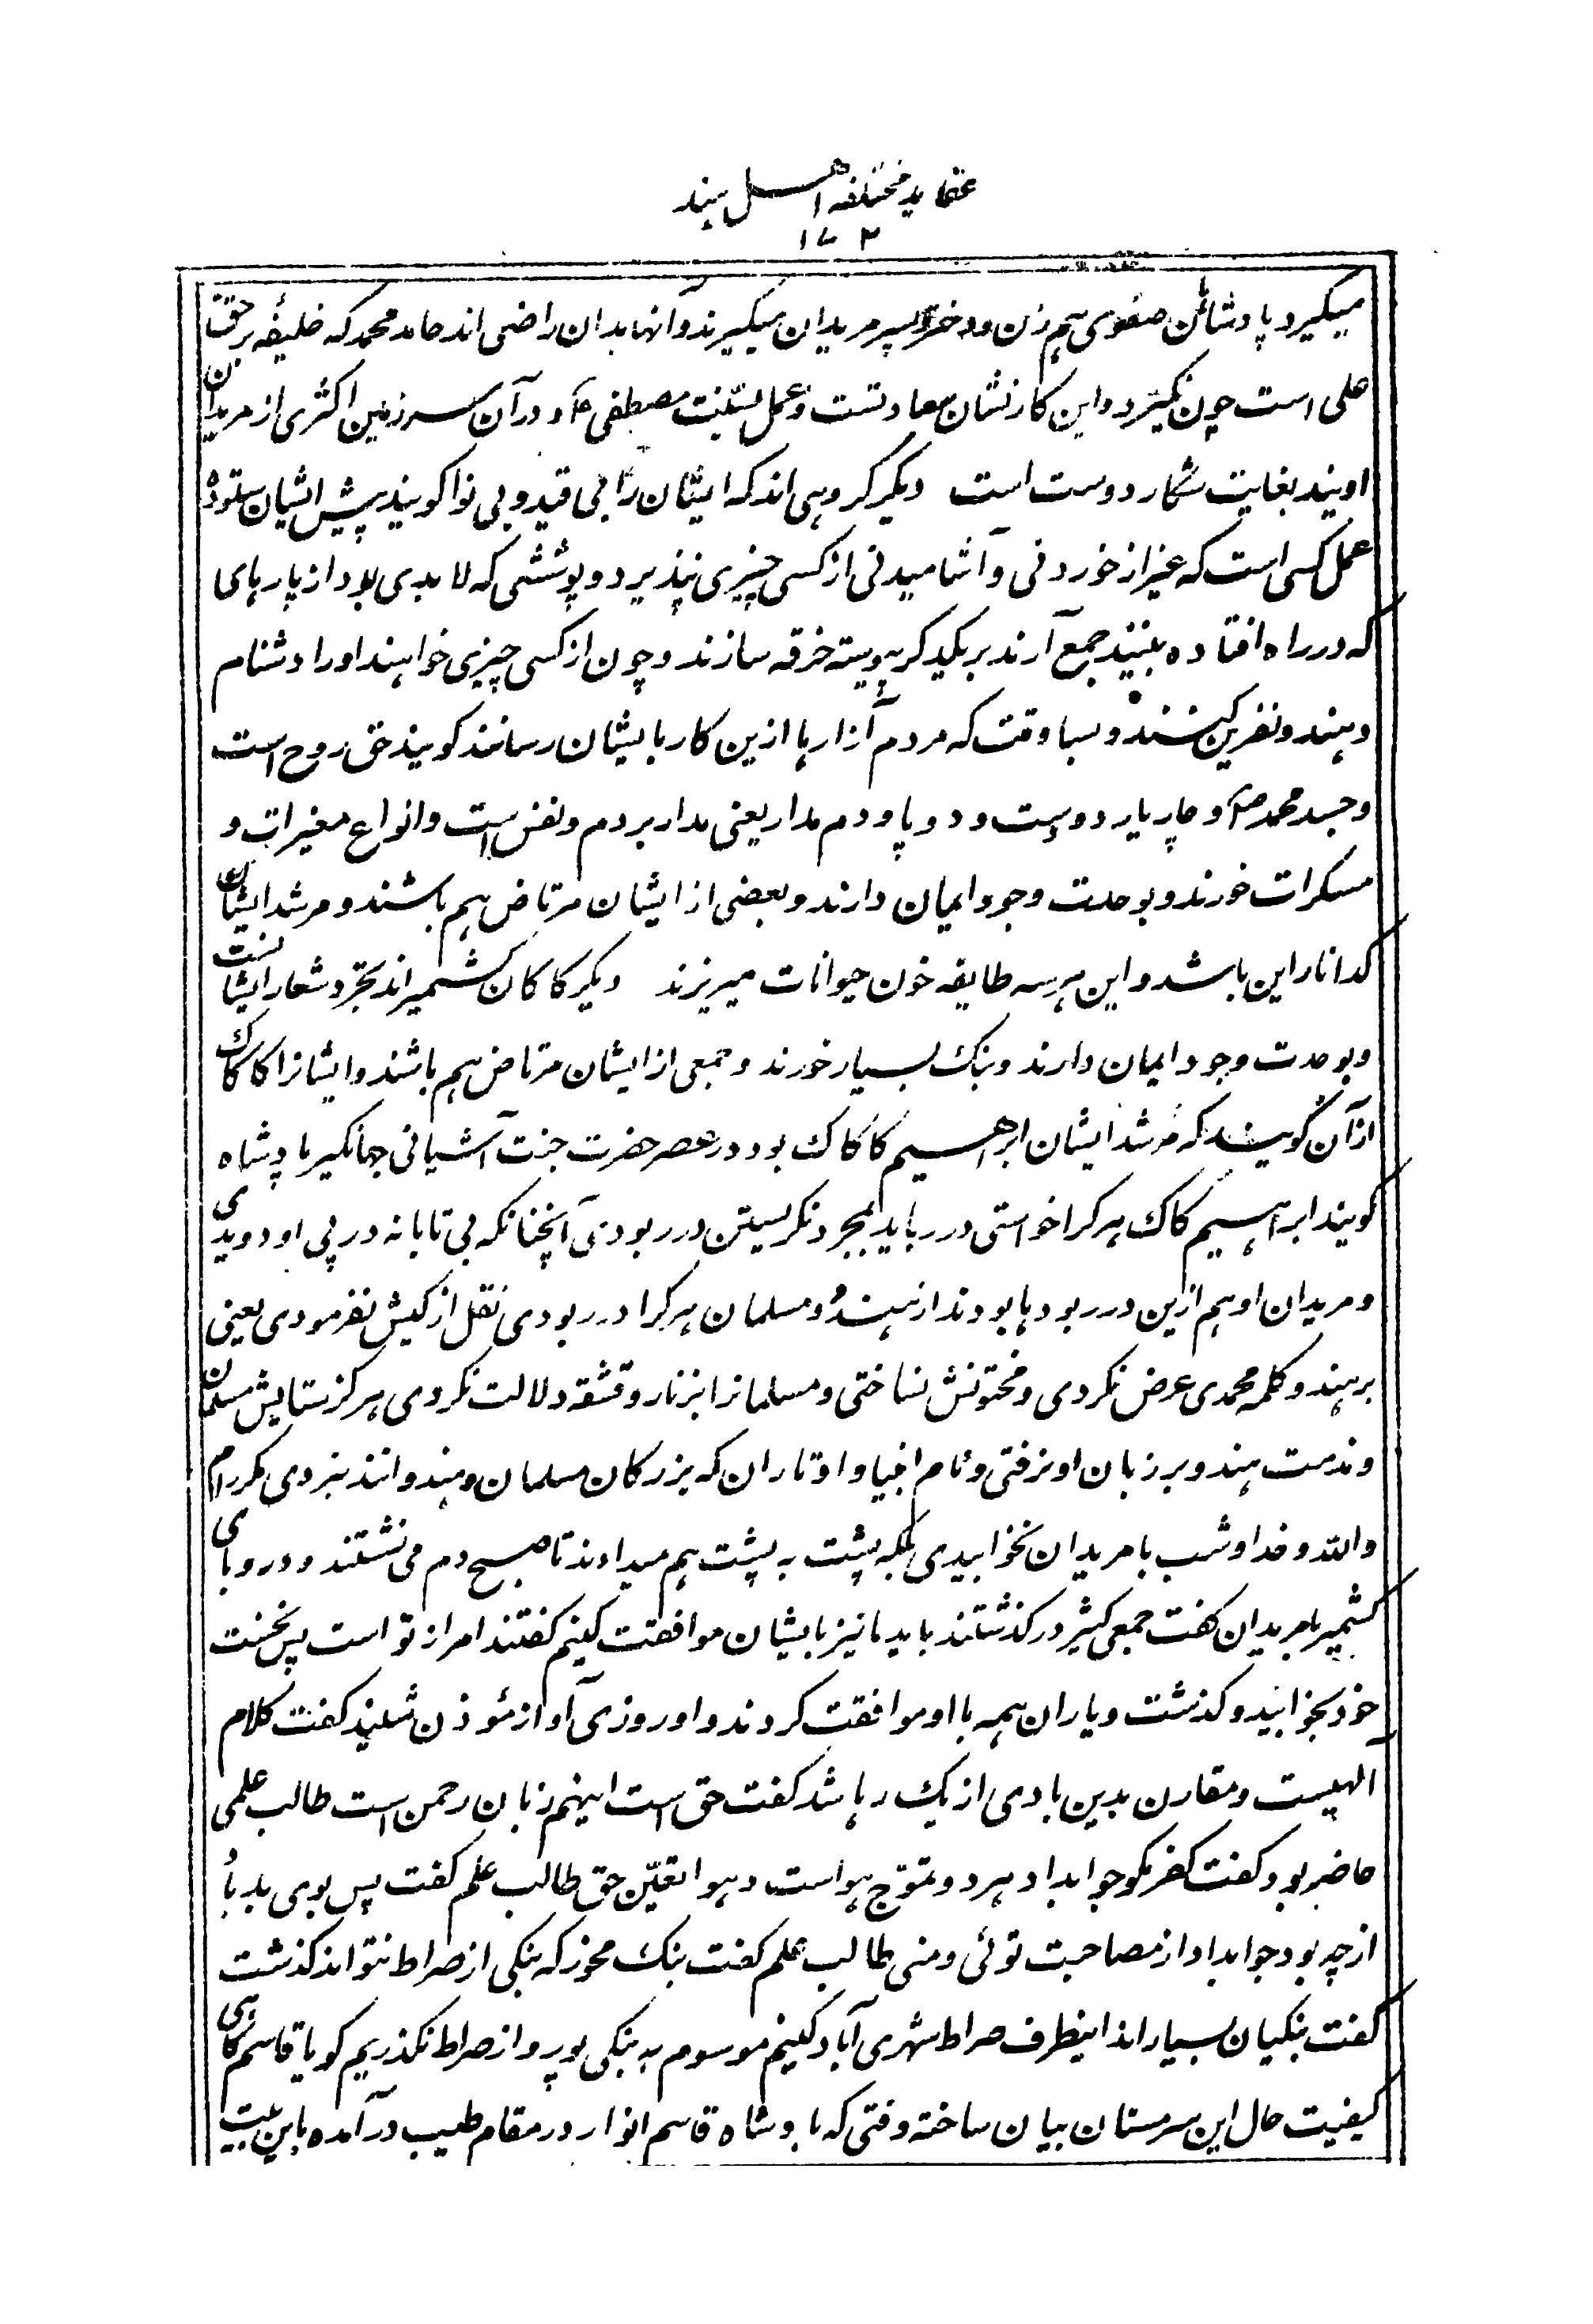 عقاید مختلفه اهل هند
۱۷۲
میگیرد پادشاهان صفوی هم زن و دختر و پسر مریدان میگیرند و آنها بدان راضی اند حامد محمد که خلیفه بر حق
علی است چون نگیرد و این کار نشان سعادتست و عمل بسنت مصطفی و در آن سرزمین اکثری از مریدان
اویند بغایت شکار دوست است دیگر گروهی اند که ایشان را بی قید و بی نوا گویند پیش ایشان ستوده
عمل کسی است که غیر از خوردنی و آشامیدنی از کسی چیزی نپذیرد و پوششی که لابدی بود از پارهای
که در راه افتاده بینند جمع آرند بر یکدیگر پیوسته خرقه سازند و چون از کسی چیزی خواهند او را دشنام
دهند و نفرین کنند و بسا وقت که مردم آزارها ازین کار بایشان رسانند گویند حق روح است
و جسد محمد صلم و چار یار دو دست و دو پا و دم مدار یعنی مدار بر دم و نفس است و انواع مغیرات و
مسکرات خورند و بوحدت وجود ایمان دارند و بعضی از ایشان مرتاض هم باشند و مرشد ایشان
گدا ناراین باشد و این هر سه طایفه خون حیوانات میریزند دیگر کاکان کشمیر اند تجرد شعار ایشانست
و بوحدت وجود ایمان دارند و بنگ بسیار خورند و جمعی از ایشان مرتاض هم باشند و ایشانرا کاکاک
از آن گویند که مرشد ایشان ابراهیم کاکاک بود در عصر حضرت جنت آشیانی جهانگیر پادشاه
گویند ابراهیم کاک هر کرا خواستی در رباید بمجرد نگریستن در ربودی آنچنانکه بی تابانه در پی او دویدی
و مریدان او هم ازین در ربودها بودند از هندو و مسلمان هر کرا در ربودی نقل از کیش نفرمودی یعنی
بر هندو کلمه محمدی عرض نکردی و مختونش نساختی و مسلمانرا بزنار و قشقه دلالت نکردی هرگز ستایش مسلمان
و مذمت هندو بر زبان او نرفتی و نام انبیا و اوتاران که بزرگان مسلمان و هندو انند نبردی مگر رام
و الله و خدا و شب با مریدان نخوابیدی بلکه پشت به پشت هم میدادند تا صبح دم می نشستند و در وبای
کشمیر با مریدان گفت جمعی کثیر در گذشتند باید ما نیز بایشان موافقت کنیم گفتند امر از تو است پس نخست
خود بخوابید و گذشت و یاران همه با او موافقت کردند و او روزی آواز مؤذن شنید گفت کلام
الهیست و مقارن بدین بادی از یک رها شد گفت حق است اینهم زبان رحمن است طالب علمی
حاضر بود گفت کفر مگو جوابداد هر دو تموج هواست و هوا تعین حق طالب علم گفت پس بوی بد با
از چه بود جوابداد از مصاحبت توئی و منی طالب علم گفت بنگ مخور که بنگی از صراط نتواند گذشت
گفت بنگیان بسیار اند اینطرف صراط شهری آباد کنیم موسوم به بنگی پور و از صراط نگذریم گویا قاسم کاهی
کیفیت حال این سرمستان بیان ساخته وقتی که با و شاه قاسم انوار در مقام طیب در آمده باین بیت